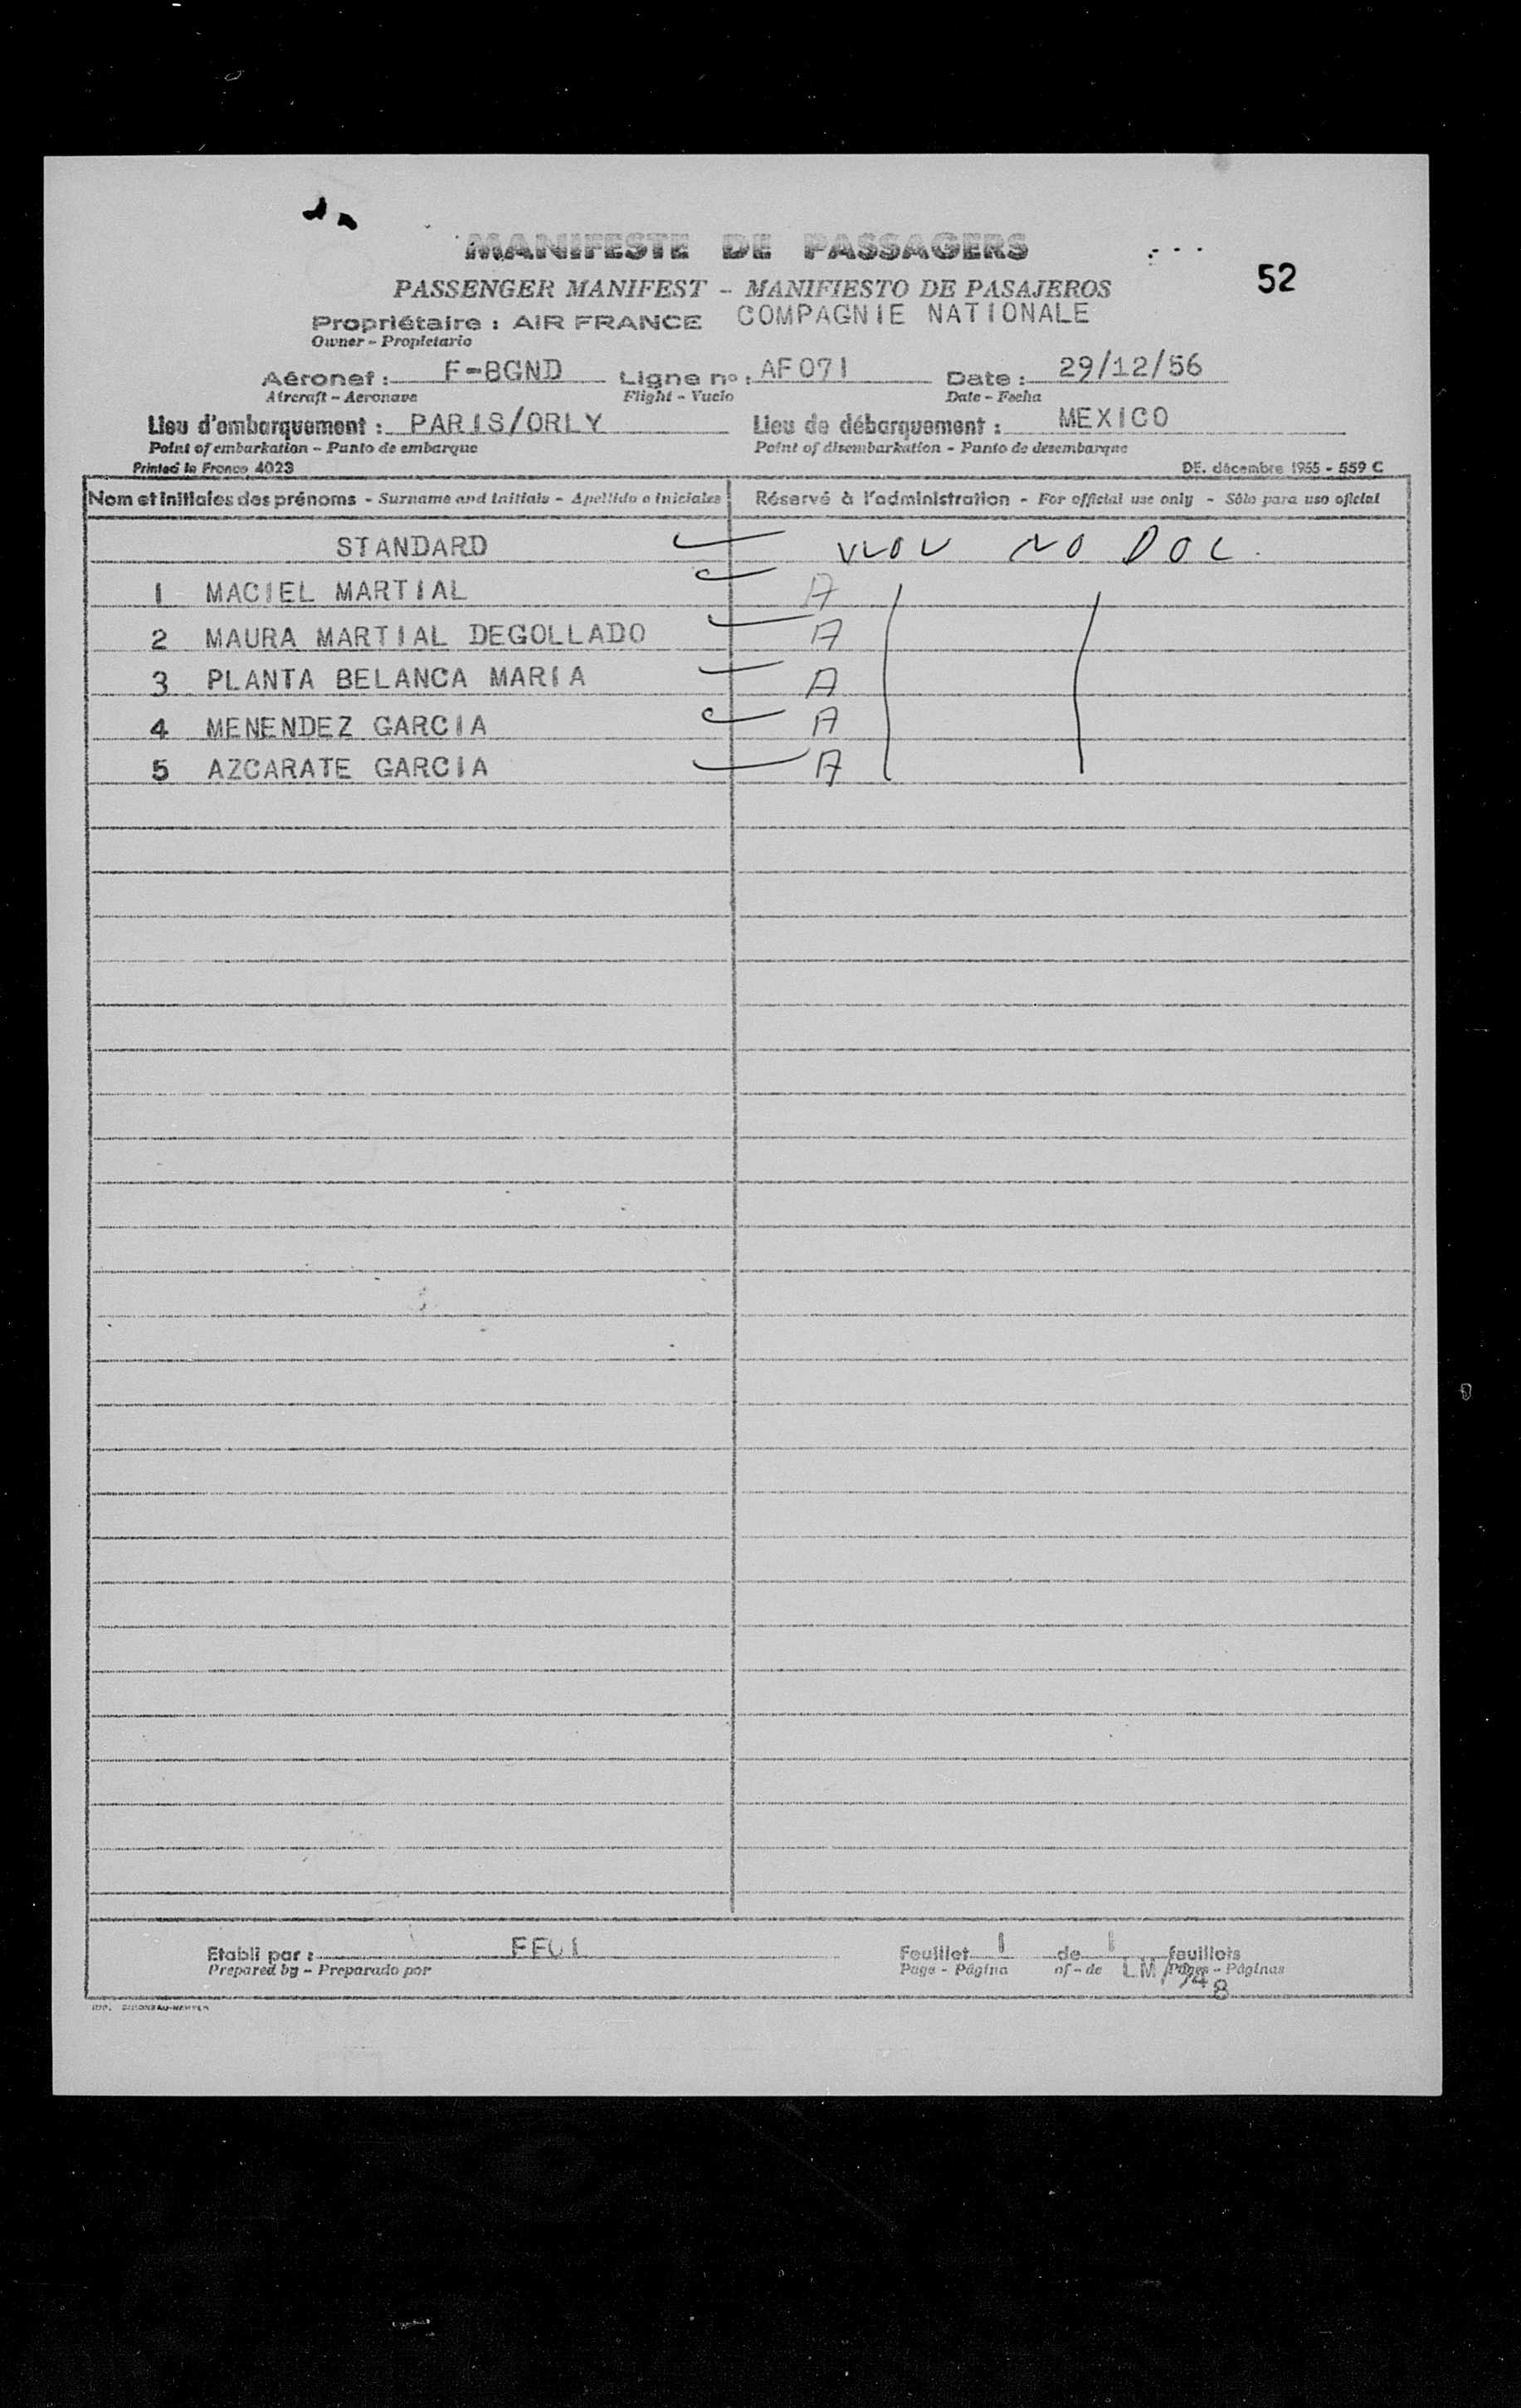 MANIFESTE DE PASSAGERS
PASSENGER MANIFEST - MANIFIESTO DE PASAJEROS
52
Propriétaire : AIR FRANCE COMPAGNIE NATIONALE
Owner - Propietario
Aéronef : F-BGND Ligne no : AF 071 Date : 29/12/56
Aircraft - Aeronave Flight - Vuelo Date - Fecha
Lieu d'embarquement : PARIS/ORLY Lieu de débarquement : MEXICO
Point of embarkation - Punto de embarque Point of disembarkation - Punto de desembarque
Printed in France 4023 DE. décembre 1955 - 559 C
Nom et initiales des prénoms - Surname and initials - Apellido e iniciales Réservé à l'administration - For official use only - Sólo para uso oficial
STANDARD NO DOC.
1 MACIEL MARTIAL A
2 MAURA MARTIAL DEGOLLADO A
3 PLANTA BELANCA MARIA A
4 MENENDEZ GARCIA A
5 AZCARATE GARCIA A
Etabli par : Feuillet 1 de 1 feuillets
Prepared by - Preparado por Page - Página of - de LM Pages - Páginas
8